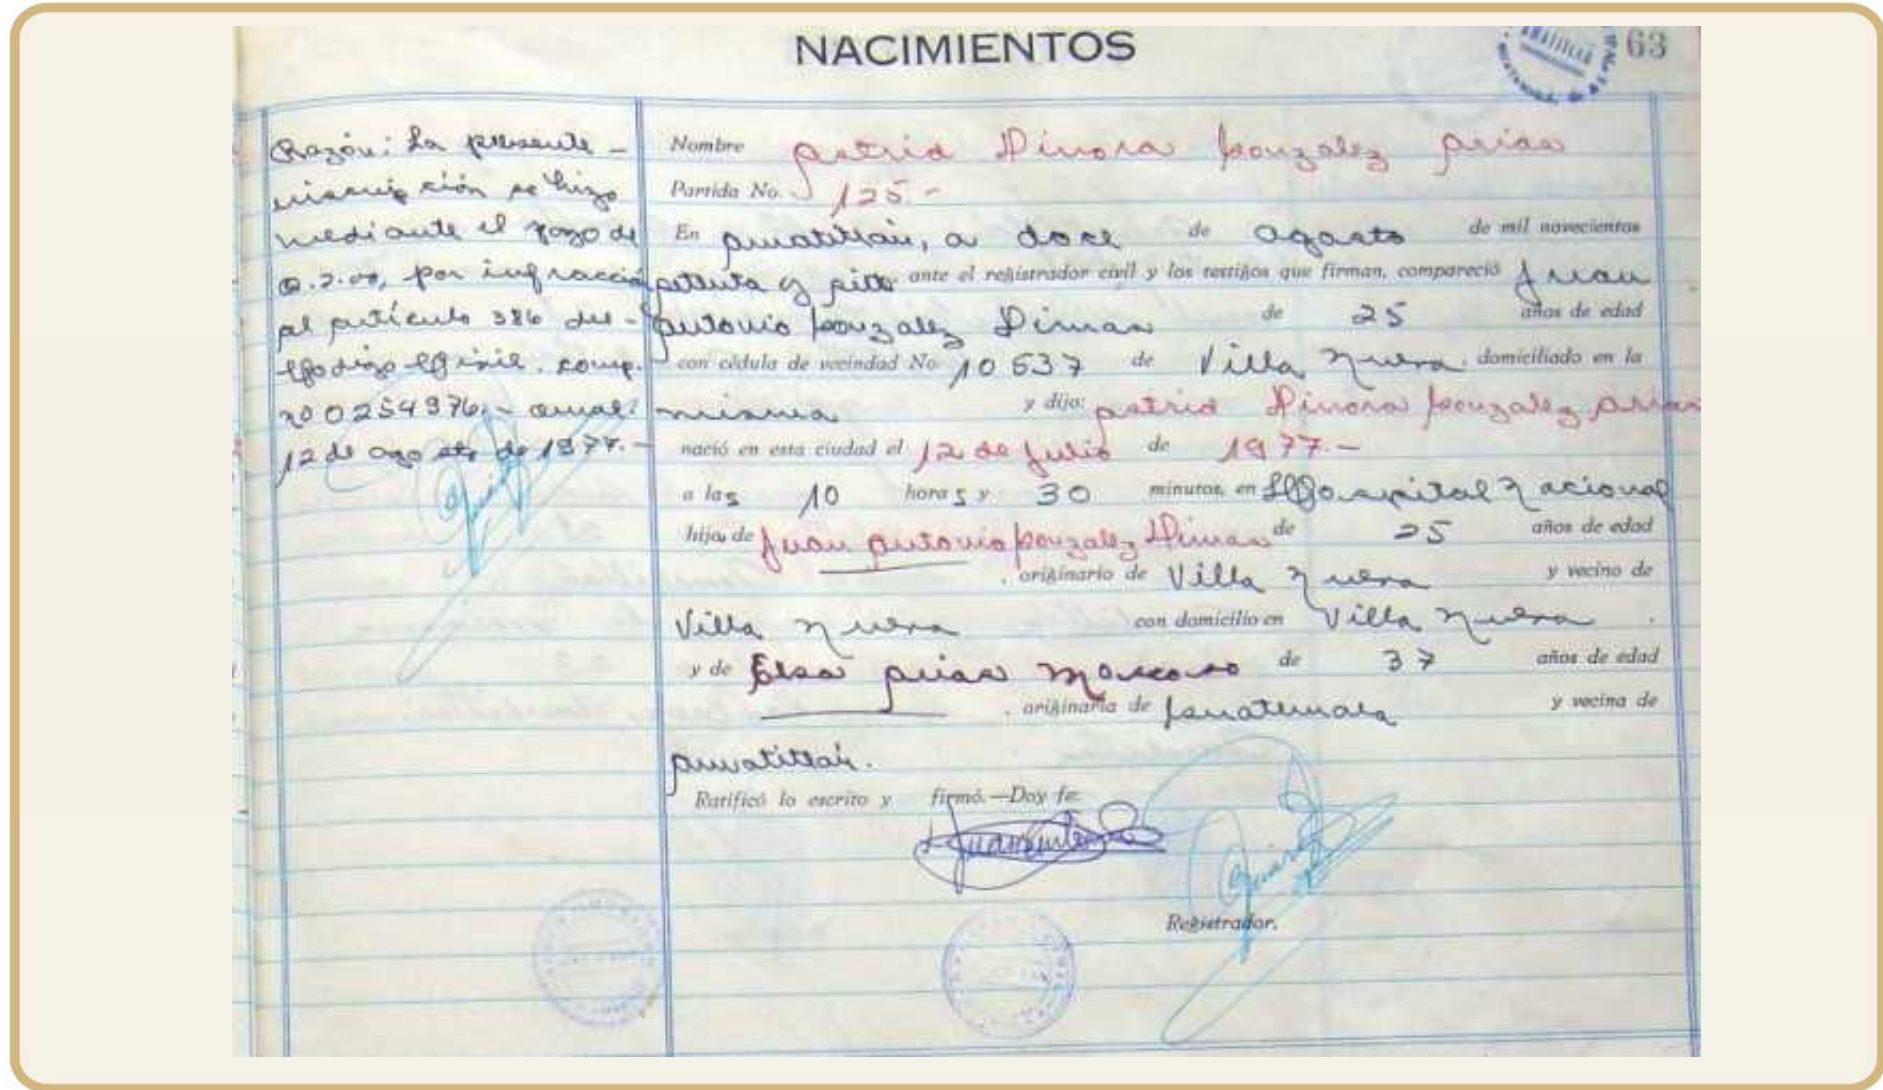 NACIMIENTOS
63
Razón: La presente -
inscripción se hizo
mediante el pago de
Q.2.00, por infracción
al artículo 386 del -
Código Civil. comp.
no 0254376.- Amat.
12 de agosto de 1977.-
Nombre Astrid Dinora Gonzalez Arias
Partida No. 125.-
En Amatitlán, a doce de agosto de mil novecientos
setenta y siete ante el registrador civil y los testigos que firman, compareció Juan
Antonio Gonzalez Dimas de 25 años de edad
con cédula de vecindad No. 10637 de Villa Nueva domiciliado en la
misma y dijo: Astrid Dinora Gonzalez Arias
nació en esta ciudad el 12 de Julio de 1977.-
a las 10 horas y 30 minutos, en Hospital Nacional
hija de Juan Antonio Gonzalez Dimas de 25 años de edad
, originario de Villa Nueva y vecino de
Villa Nueva con domicilio en Villa Nueva.
y de Elsa Arias de 37 años de edad
, originaria de Guatemala y vecina de
Amatitlán.
Ratificó lo escrito y firmó.—Doy fe:
Registrador.